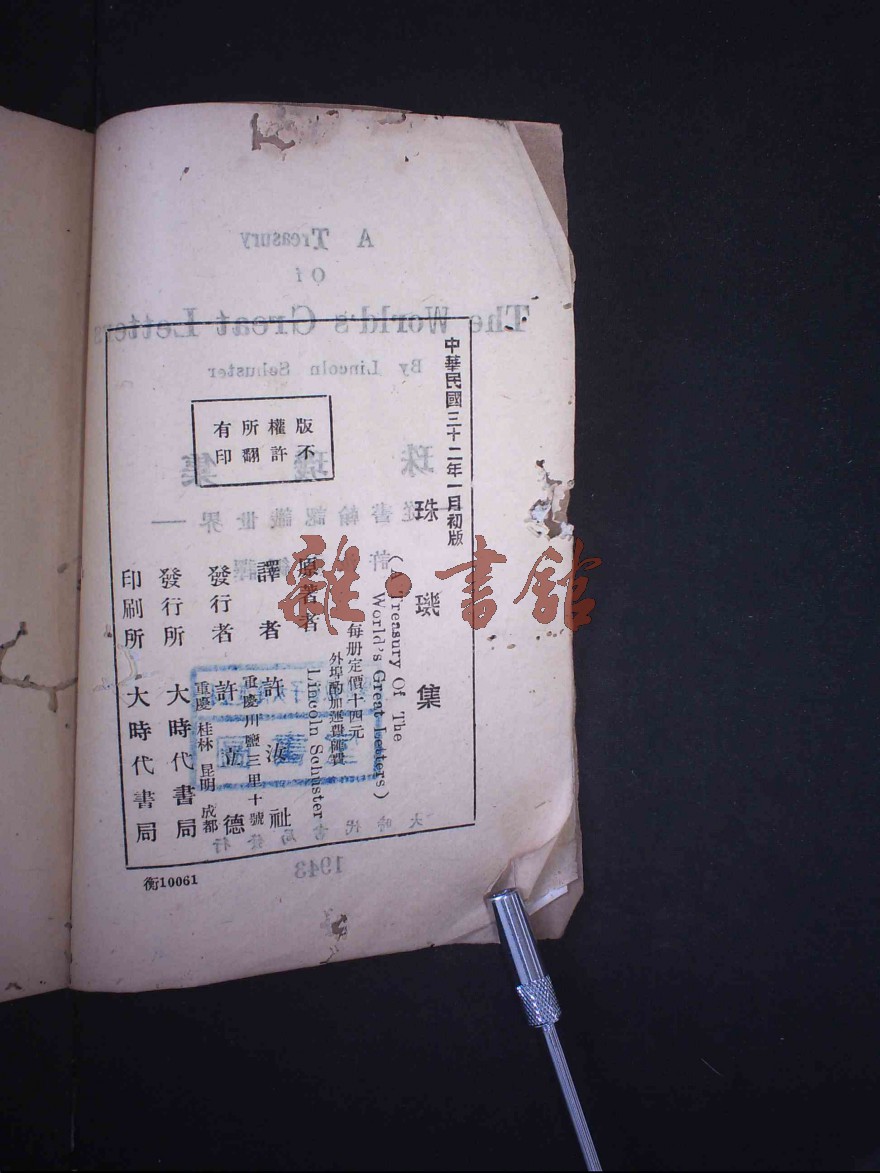 中華民國三十二年一月初版
珠璣集
(A Treasury Of The
World's Great Letters)
每册定價十四元
外埠酌加運費郵費
原著者 Lincoln Schuster
譯者 許汝祉
重慶川鹽三里十號
發行者 許立德
重慶 桂林 昆明 成都
發行所 大時代書局
印刷所 大時代書局
版權所有
不許翻印
衡10061
雜·書館
A Treasury
Of
The World's Great Letters
By Lincoln Schuster
珠璣集
書翰認識世界
大時代書局發行
1943